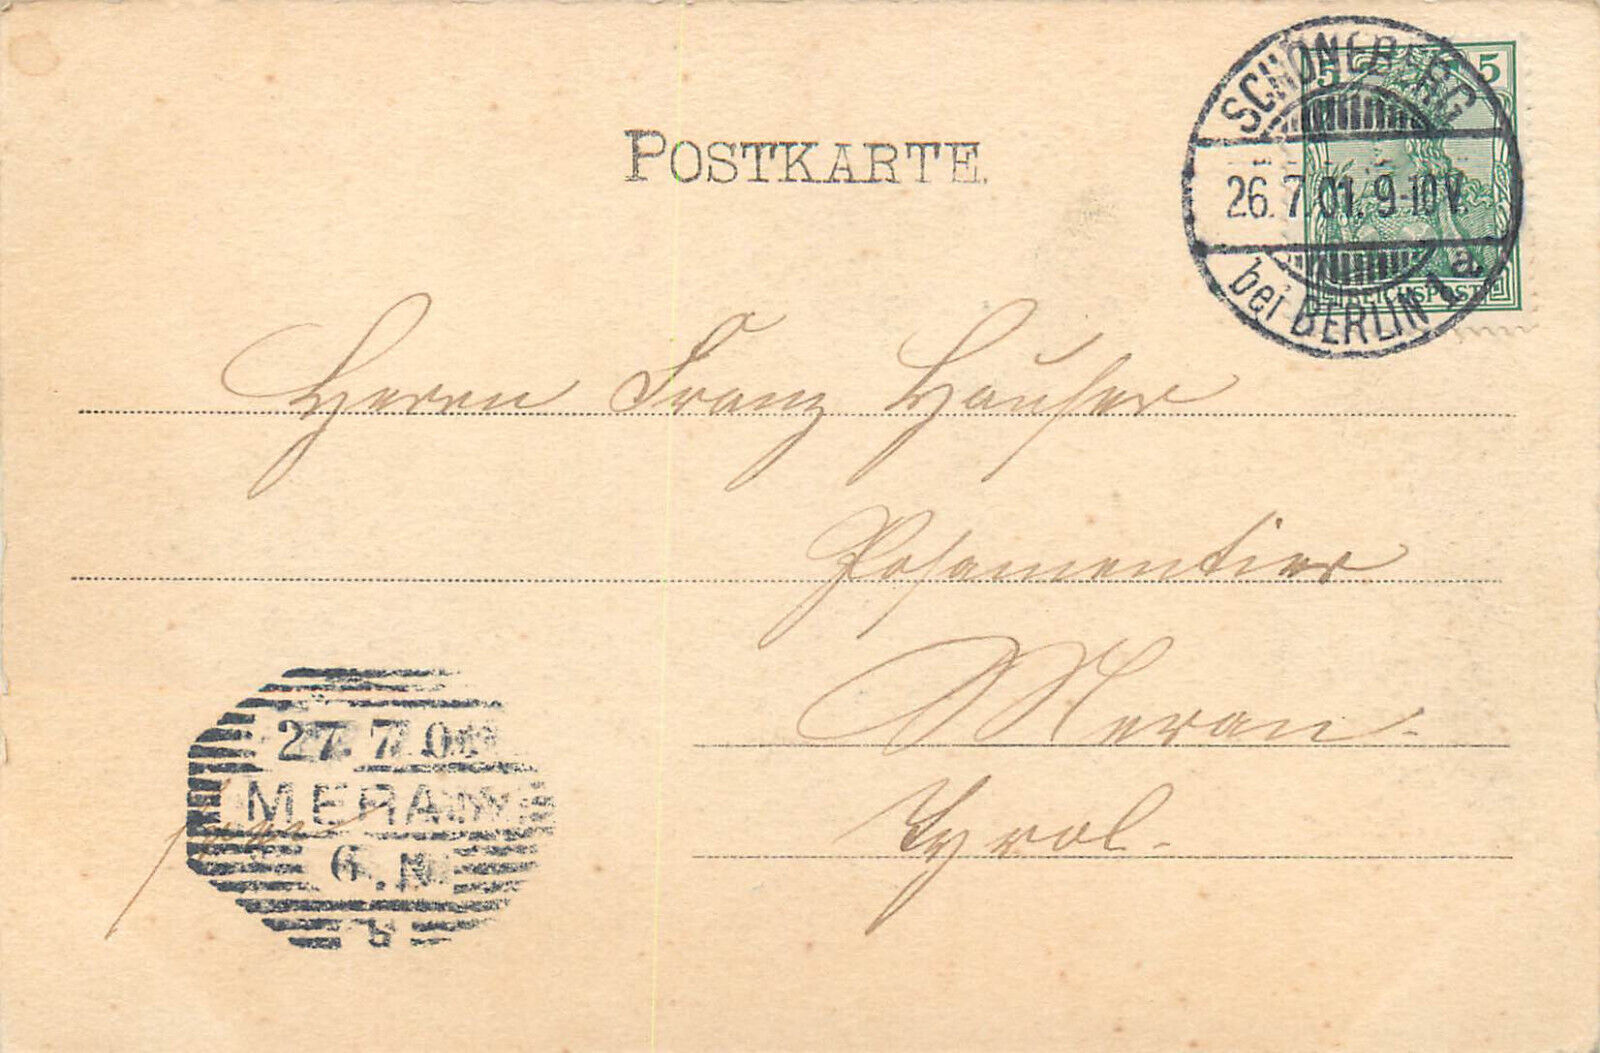 POSTKARTE
SCHÖNEBERG
5 5
26.7.01. 9-10V.
bei BERLIN 1a
REICHSPOST
Herrn Franz Hauser
Posamentier
Meran.
Tyrol.
27.7.01
MERAN
6.N